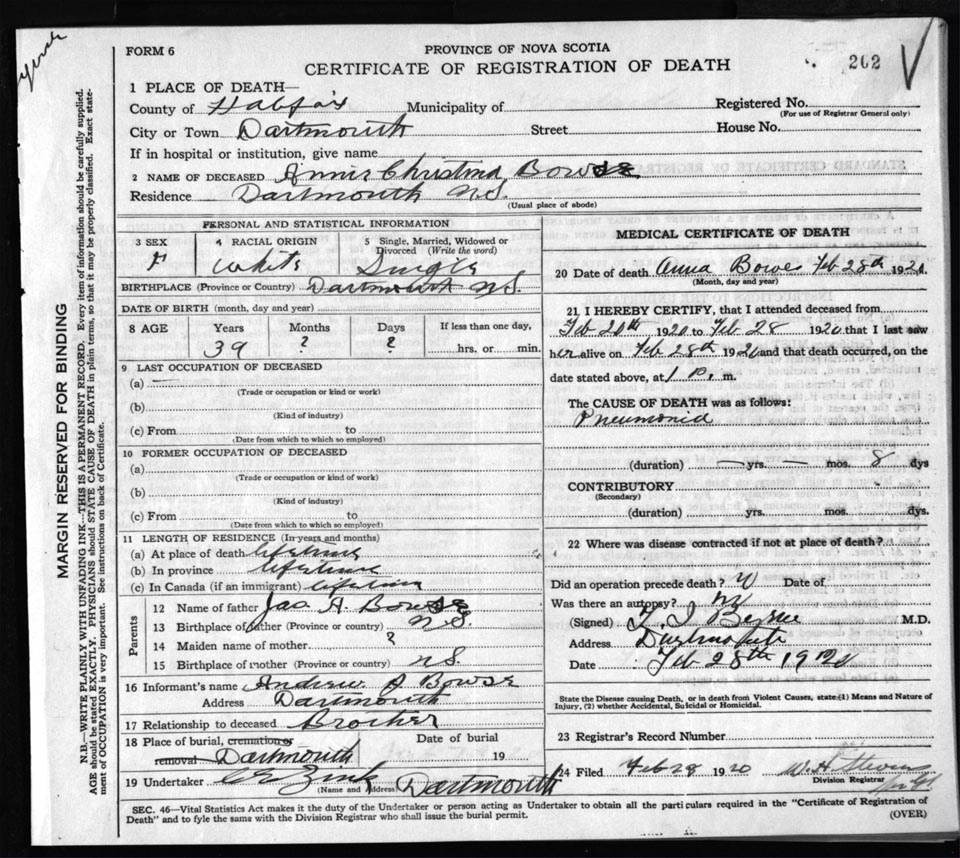 FORM 6
PROVINCE OF NOVA SCOTIA
CERTIFICATE OF REGISTRATION OF DEATH
262
1 PLACE OF DEATH—
County of Halifax Municipality of Registered No.
(For use of Registrar General only)
City or Town Dartmouth Street House No.
If in hospital or institution, give name
2 NAME OF DECEASED Annie Christina Bowse
Residence Dartmouth N.S.
(Usual place of abode)
PERSONAL AND STATISTICAL INFORMATION
3 SEX 4 RACIAL ORIGIN 5 Single, Married, Widowed or Divorced (Write the word)
F White Single
BIRTHPLACE (Province or Country) Dartmouth N.S.
DATE OF BIRTH (month, day and year)
8 AGE Years Months Days If less than one day,
39 ? ? hrs. or min.
9 LAST OCCUPATION OF DECEASED
(a) —
(Trade or occupation or kind or work)
(b)
(Kind of industry)
(c) From to
(Date from which to which so employed)
10 FORMER OCCUPATION OF DECEASED
(a)
(Trade or occupation or kind of work)
(b)
(Kind of industry)
(c) From to
(Date from which to which so employed)
11 LENGTH OF RESIDENCE (In years and months)
(a) At place of death lifetime
(b) In province lifetime
(c) In Canada (if an immigrant) lifetime
Parents
12 Name of father Jas A. Bowse
13 Birthplace of father (Province or country) N.S.
14 Maiden name of mother ?
15 Birthplace of mother (Province or country) N.S.
16 Informant's name Andrew A Bowse
Address Dartmouth
17 Relationship to deceased Brother
18 Place of burial, cremation or removal Dartmouth Date of burial 19
19 Undertaker Zink Dartmouth
(Name and Address)
MEDICAL CERTIFICATE OF DEATH
20 Date of death Anna Bowe Feb 28th 1920
(Month, day and year)
21 I HEREBY CERTIFY, that I attended deceased from
Feb 20th 1920 to Feb 28 1920 that I last saw
her alive on Feb 28th 1920 and that death occurred, on the
date stated above, at 1 P. m.
The CAUSE OF DEATH was as follows:
Pneumonia
(duration) — yrs. — mos. 8 dys
CONTRIBUTORY
(Secondary)
(duration) yrs. mos. dys.
22 Where was disease contracted if not at place of death?
Did an operation precede death? N Date of
Was there an autopsy? N
(Signed) M.D.
Address Dartmouth
Date Feb 28th 1920
State the Disease causing Death, or in death from Violent Causes, state (1) Means and Nature of
Injury, (2) whether Accidental, Suicidal or Homicidal.
23 Registrar's Record Number
24 Filed Feb 28 1920 W. H. Stevens
Division Registrar
SEC. 46—Vital Statistics Act makes it the duty of the Undertaker or person acting as Undertaker to obtain all the particulars required in the "Certificate of Registration of
Death" and to fyle the same with the Division Registrar who shall issue the burial permit.
(OVER)
MARGIN RESERVED FOR BINDING
N.B.—WRITE PLAINLY WITH UNFADING INK—THIS IS A PERMANENT RECORD. Every item of information should be carefully supplied.
AGE should be stated EXACTLY. PHYSICIANS should STATE CAUSE OF DEATH in plain terms, so that it may be properly classified. Exact state-
ment of OCCUPATION is very important. See instructions on back of Certificate.